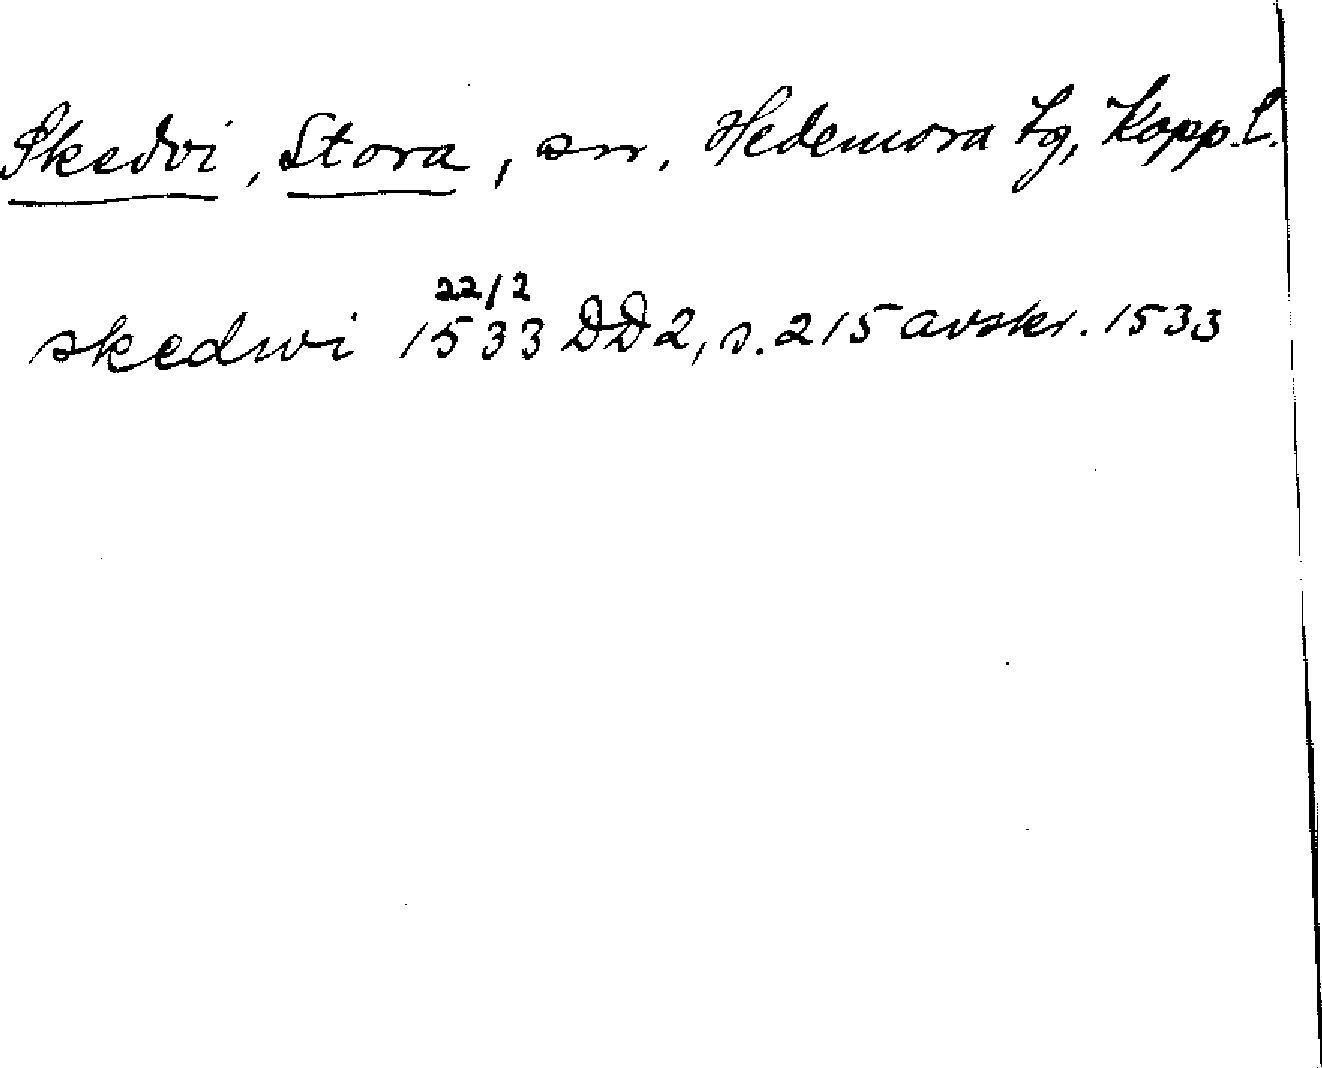 Skedvi, Stora, sn, Hedemora tg, Kopp. l.
22/2
skedwi 1533 DD2, s. 215 avskr. 1533